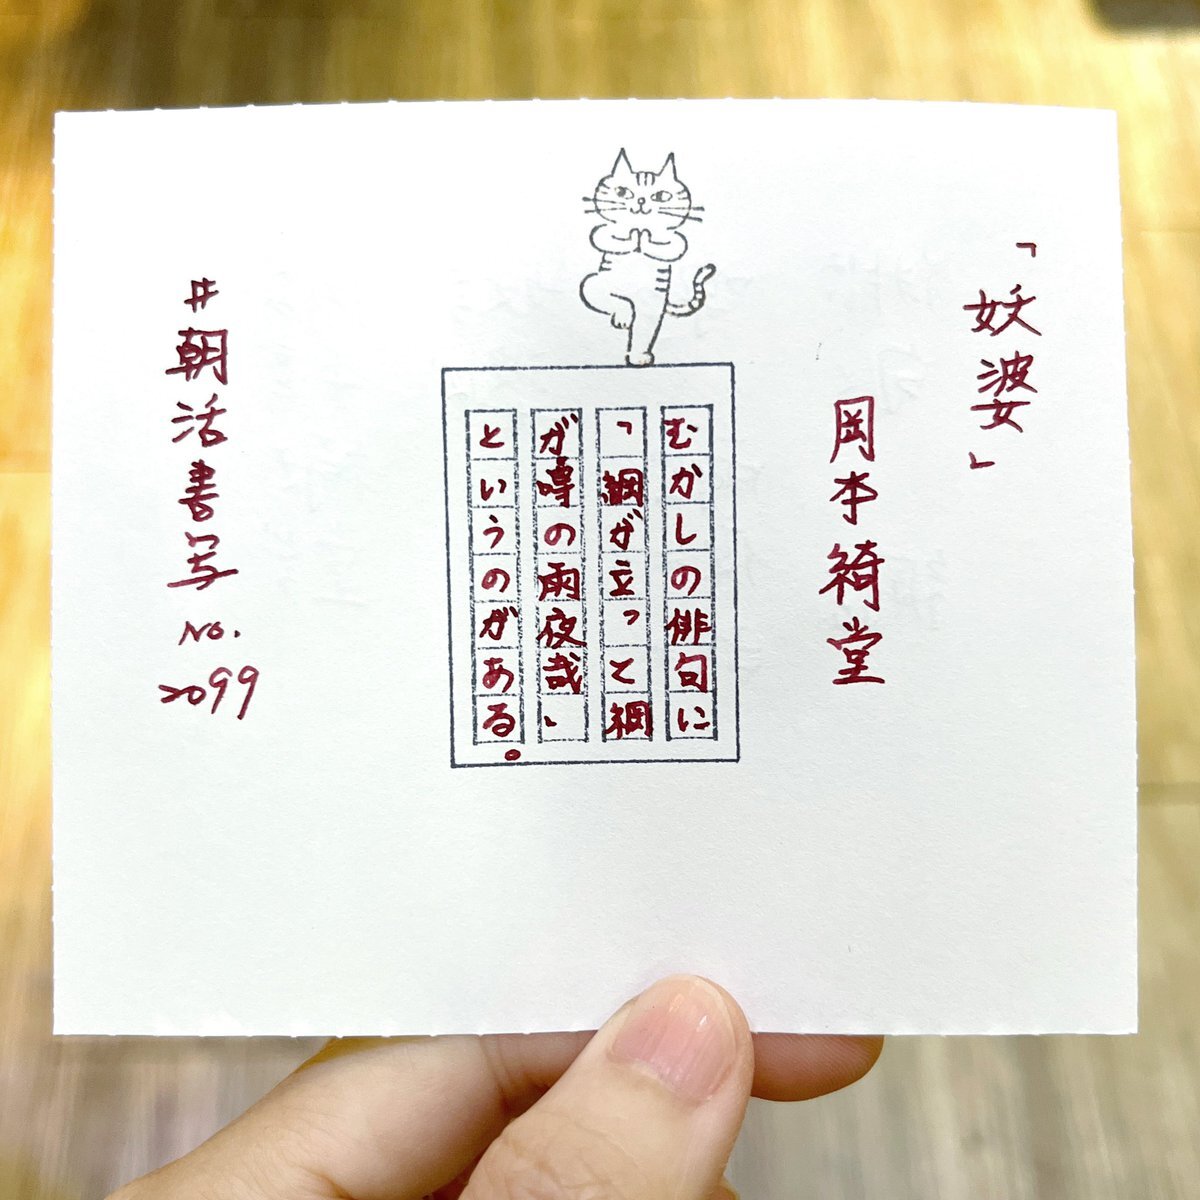 「妖婆」
岡本綺堂
むかしの俳句に
「綱が立って綱
が噂の雨夜哉」
というのがある。
#朝活書写
No.
2099